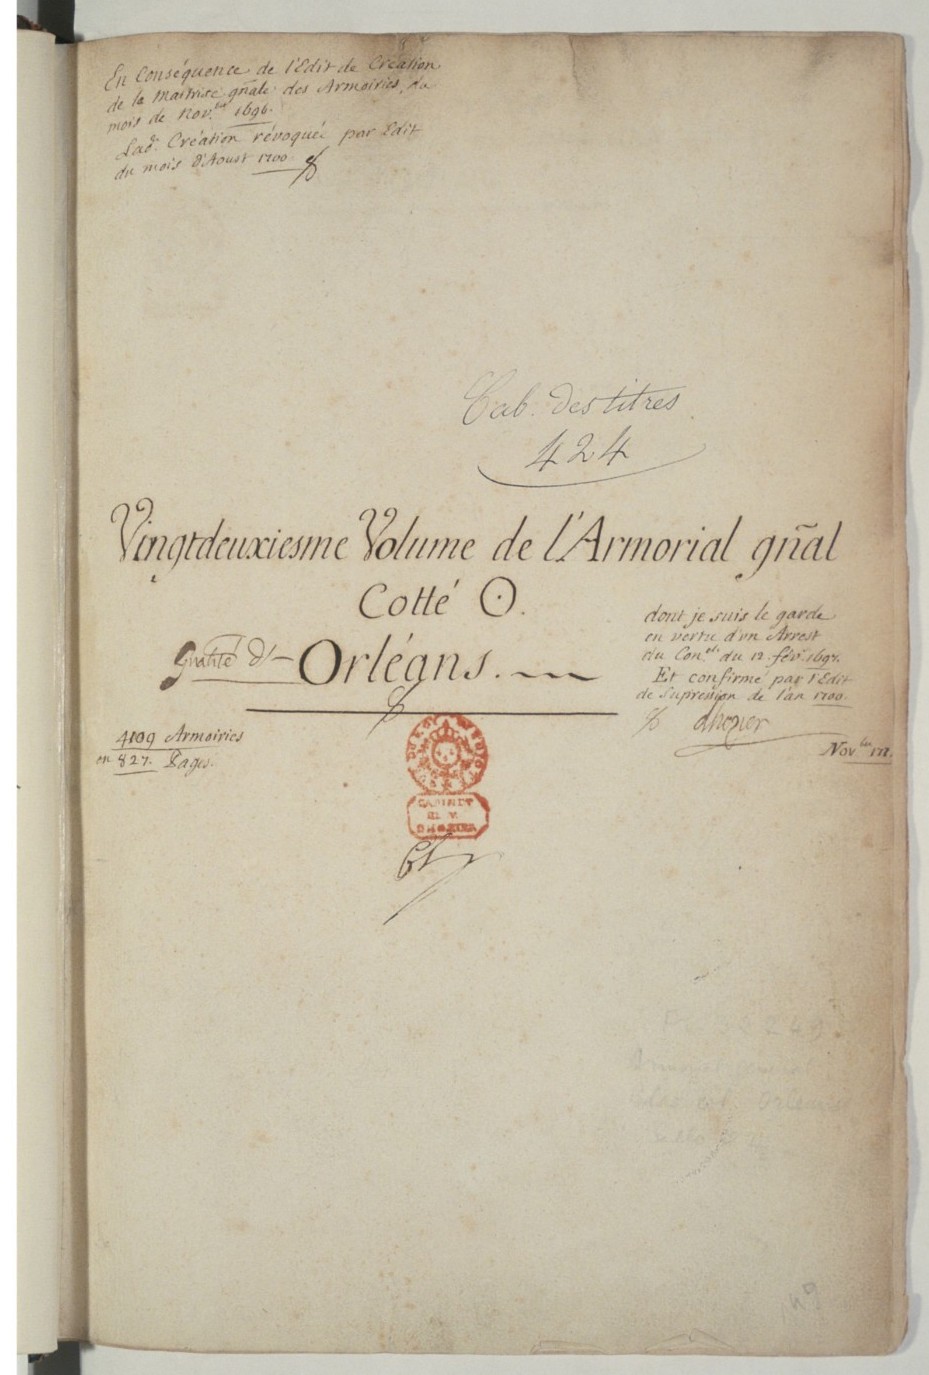 En Conséquence de l'Edit de Création
de la Maitrise gñale des Armoiries, du
mois de Nov.bre 1696.
Lad.e Création révoquée par Edit
du mois d'Aoust 1700.
Cab. des titres
424
Vingtdeuxiesme Volume de l'Armorial gñal
Cotté O.
gñalité d'
Orléans.
dont je suis le garde
en vertu d'vn Arrest
du Con.el du 12. fév.r 1697.
Et confirmé par l'Edit
de Supression de l'an 1700.
dhozier
Nov.bre
4109 Armoiries
en 827. Pages.
DU ROY
CABINET
DHOZIER
49